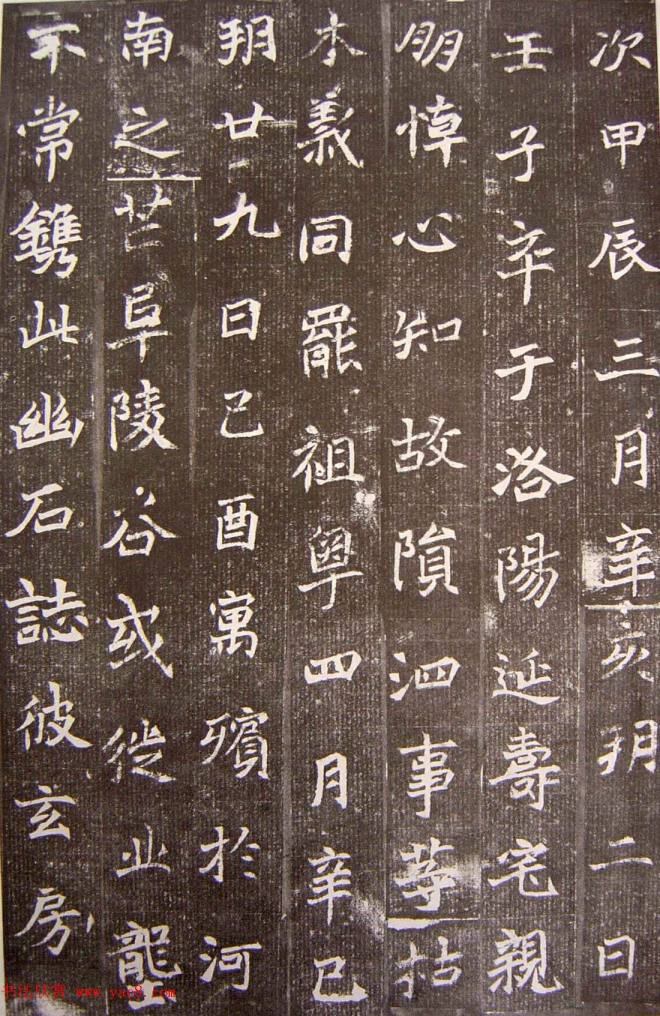 次甲辰三月辛亥朔二日
壬子卒于洛陽延壽宅親
朋悼心知故隕泗事等枯
木義同罷祖粤四月辛巳
朔廿九日己酉寓殯於河
南之芒阜陵谷或徙丘壟
不常鐫此幽石誌彼玄房
书法欣赏 www.yac8.com